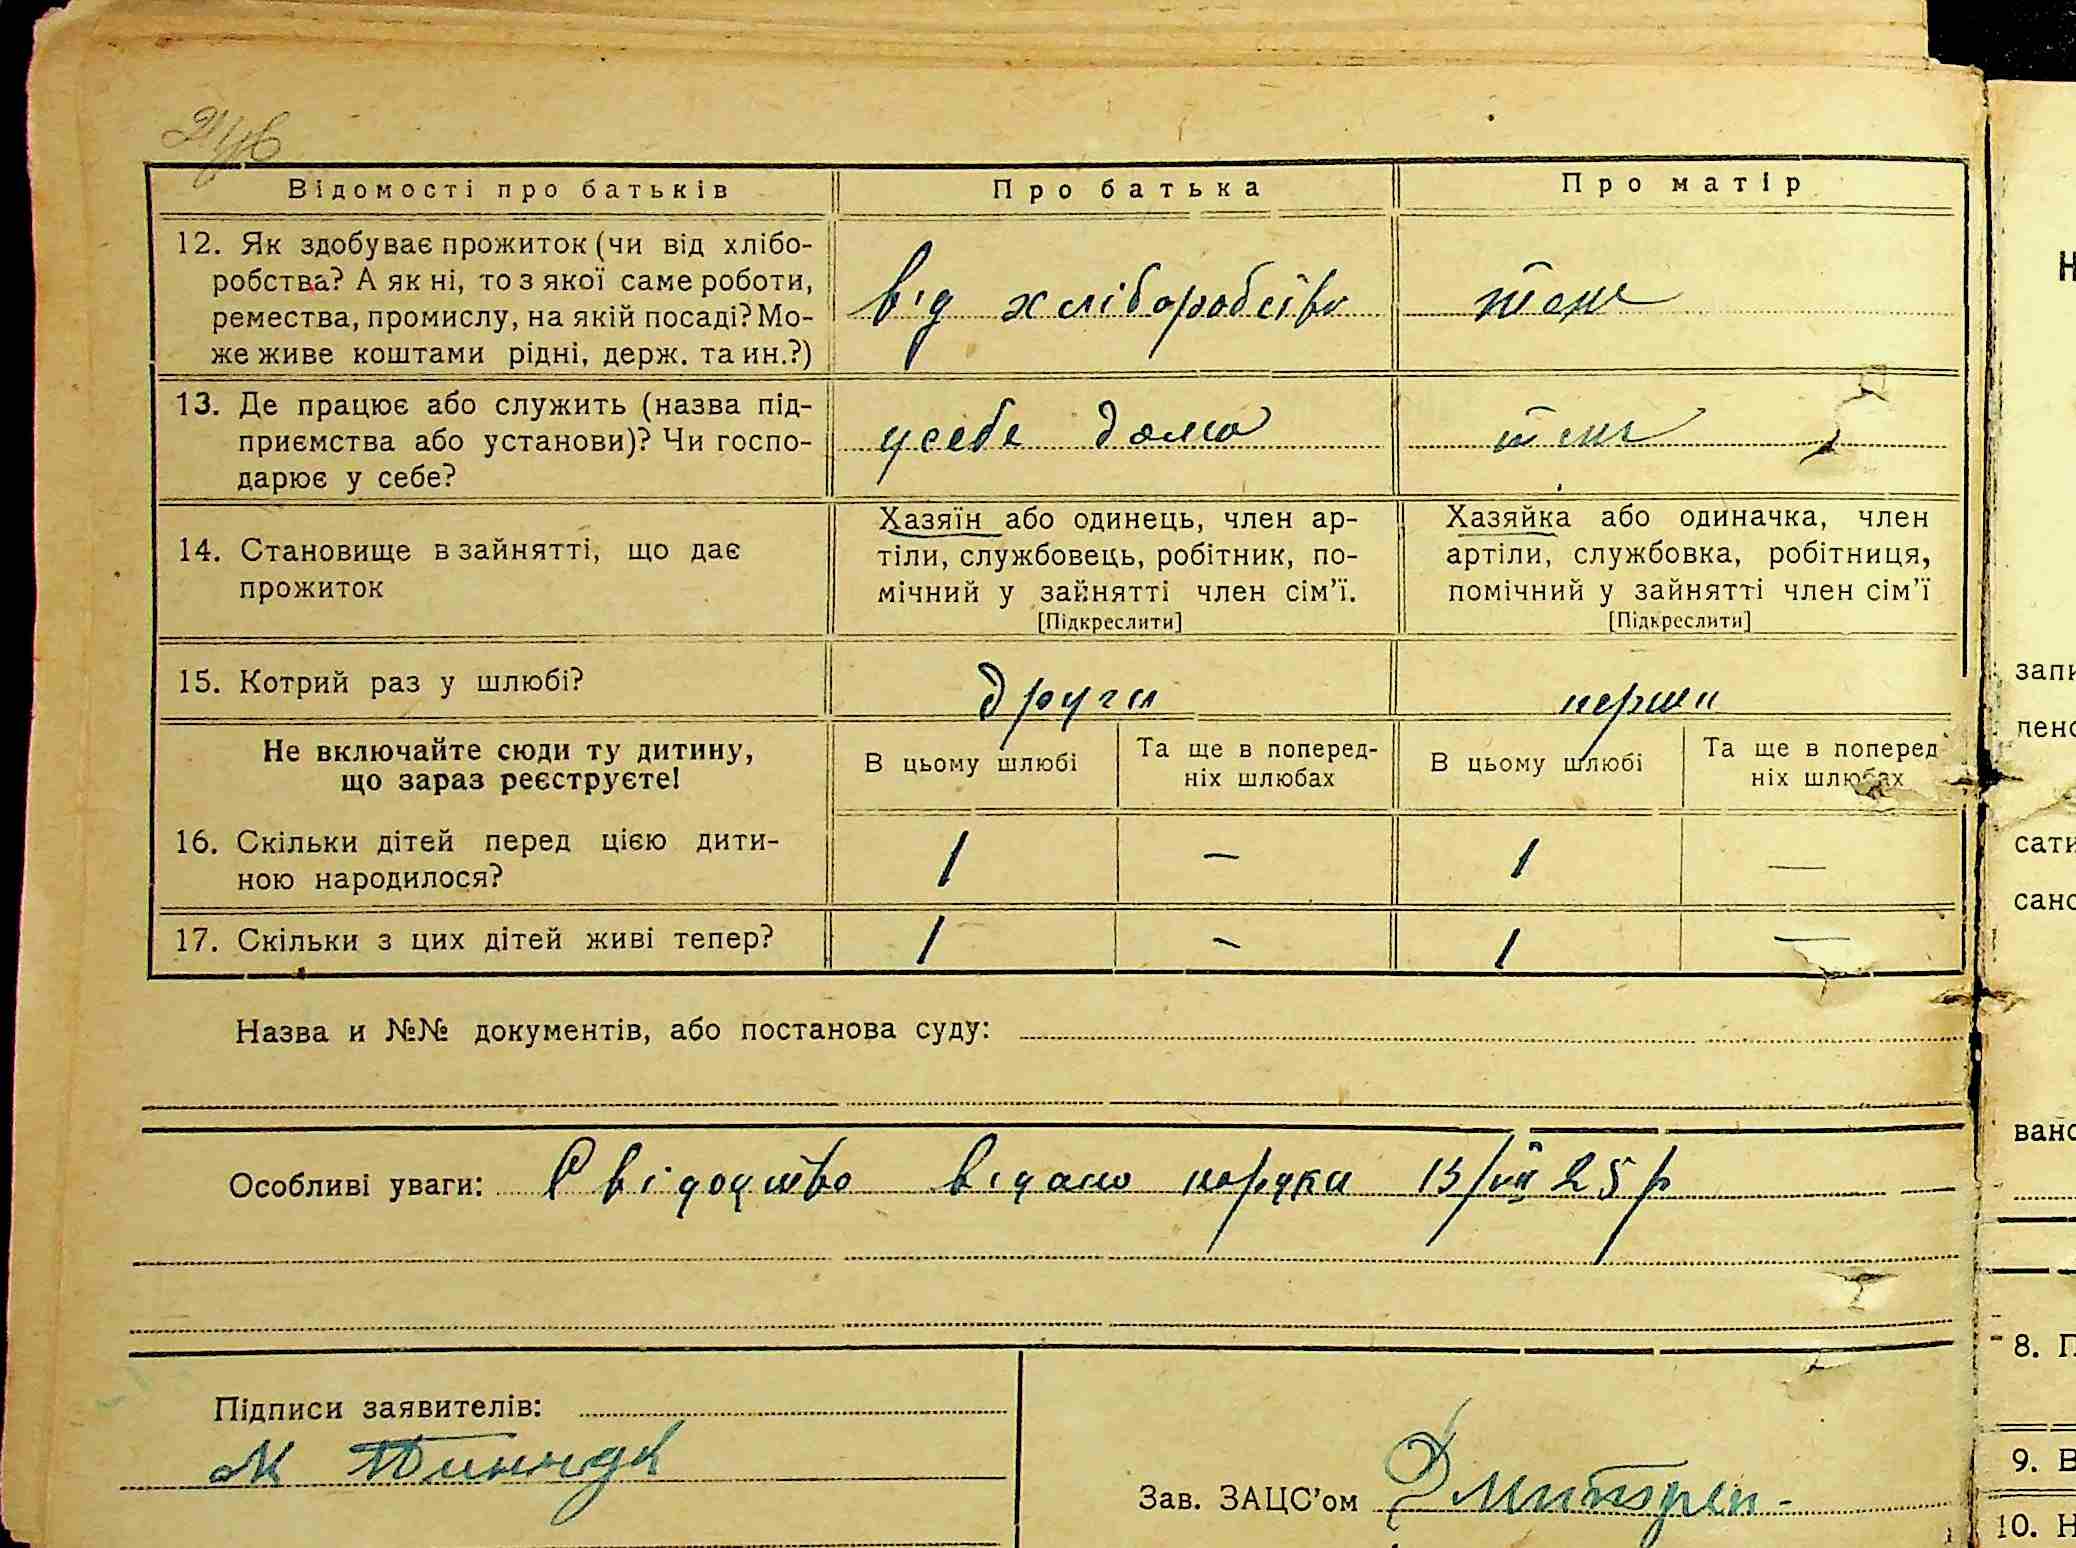 Відомості про батьків
Про батька
Про матір
12. Як здобуває прожиток (чи від хлібо-
робства? А як ні, то з якої саме роботи,
ремества, промислу, на якій посаді? Мо-
же живе коштами рідні, держ. та ин.?)
від хліборобства
теж
13. Де працює або служить (назва під-
приємства або установи)? Чи госпо-
дарює у себе?
у себе дома
теж
14. Становище в зайнятті, що дає
прожиток
Хазяїн або одинець, член ар-
тіли, службовець, робітник, по-
мічний у зайнятті член сім'ї.
[Підкреслити]
Хазяйка або одиначка, член
артіли, службовка, робітниця,
помічний у зайнятті член сім'ї
[Підкреслити]
15. Котрий раз у шлюбі?
други
перши
Не включайте сюди ту дитину,
що зараз реєструєте!
В цьому шлюбі
Та ще в поперед-
ніх шлюбах
В цьому шлюбі
Та ще в поперед
ніх шлюбах
16. Скільки дітей перед цією дити-
ною народилося?
1
—
1
—
17. Скільки з цих дітей живі тепер?
1
—
1
—
Назва и №№ документів, або постанова суду:
Особливі уваги: Свідоцтво відано 13/VIII 25 р
Підписи заявителів:
Зав. ЗАЦС'ом
Н
запи
лено
сати
сано
вано
8. П
9. В
10. Н